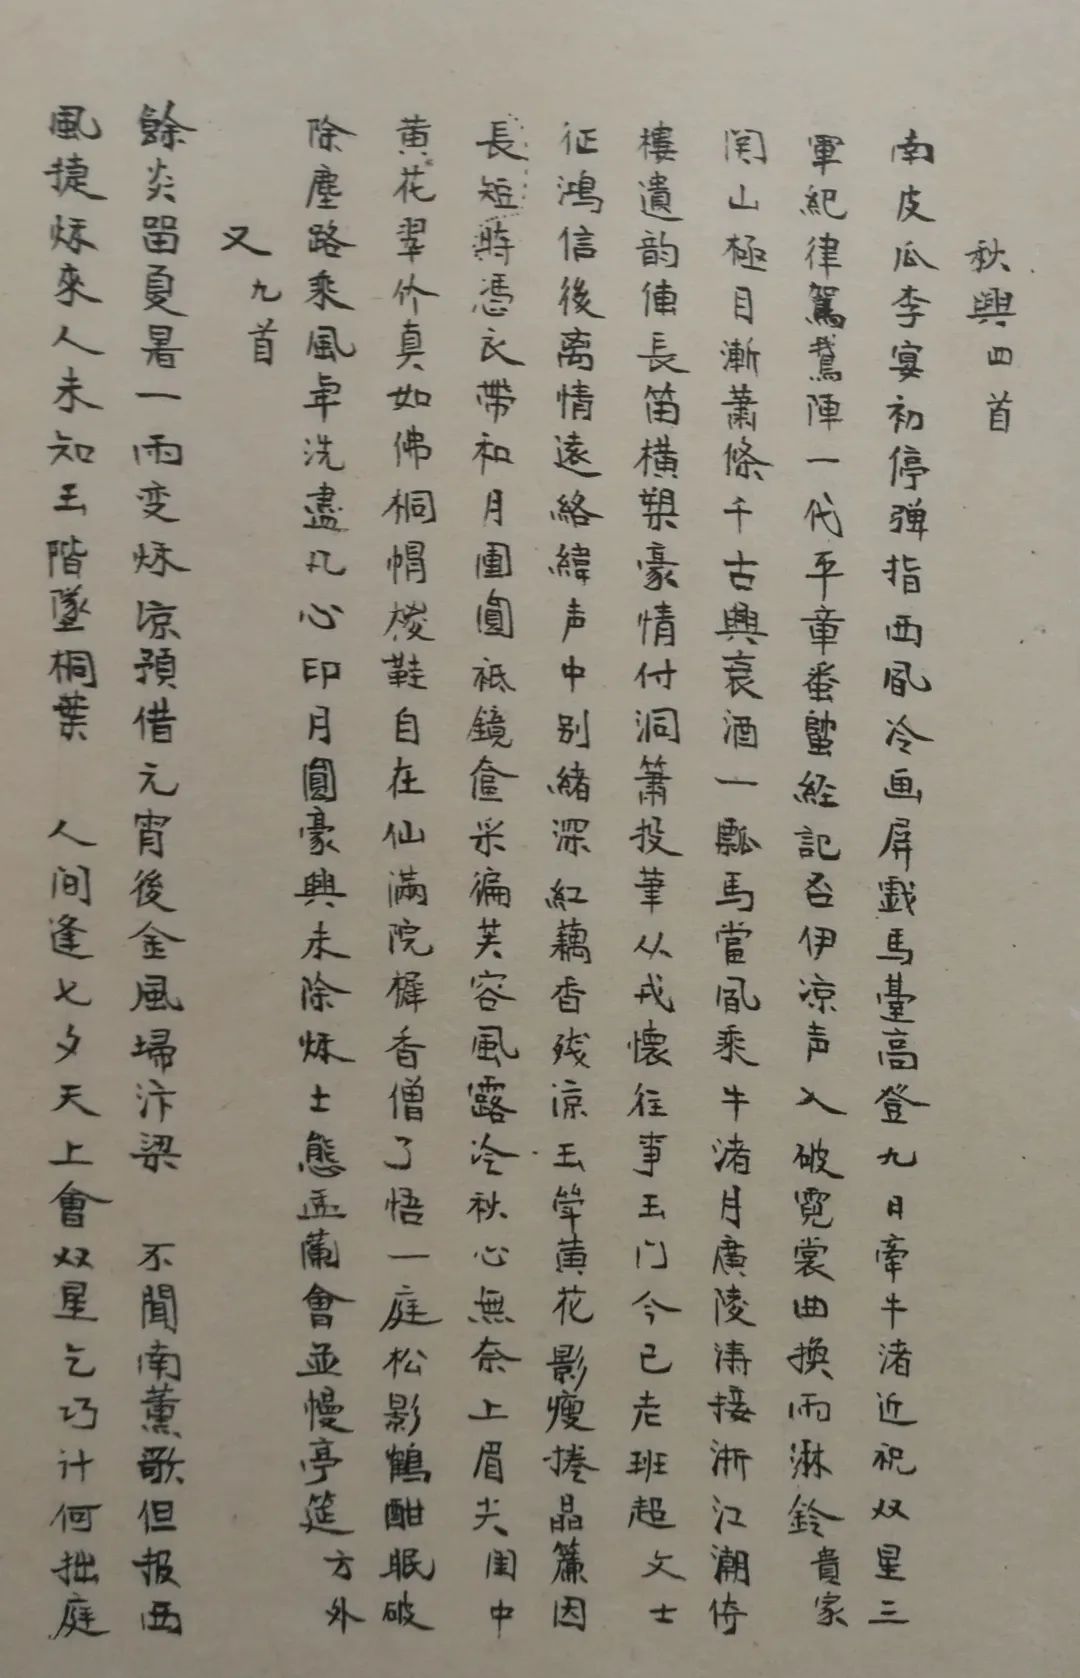 秋興四首
南皮瓜李宴初停弹指西風冷画屏戯马臺高登九日牽牛渚近祝双星三
軍紀律駕鵞陣一代平章蚕蠁経記否伊凉声入破霓裳曲換雨淋鈴貴家
関山極目漸蕭條千古興衰酒一瓢馬當風乘牛渚月廣陵涛接浙江潮倚
樓遺韵俥長笛横槊豪情付洞簫投筆从戎懷往事玉门今已老班超文士
征鴻信後离情遠絡緯声中别緒深紅藕香残凉玉簟黄花影瘦捲晶簾因
長短時憑衣帶和月團圓祗鏡奩采徧芙容風露冷秋心無奈上眉尖閨中
黄花翠竹真如佛桐帽椶鞋自在仙滿院樨香僧了悟一庭松影鶴酣眠破
除塵路乘風㫖洗盡凡心印月圓豪興未除秌士態盂蘭會並慢亭筵方外
又九首
餘炎畱夏暑一雨变秌凉預借元宵後金風埽汴梁　不聞南薰歌但报西
風捷秌來人未知玉階墜桐葉　人间逢七夕天上會双星乞巧计何拙庭